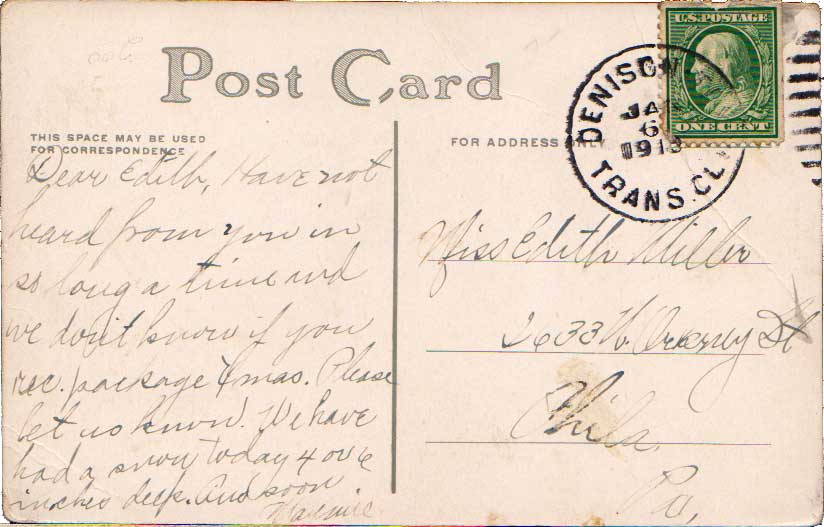 Post Card
THIS SPACE MAY BE USED
FOR CORRESPONDENCE
Dear Edith, Have not
heard from you in
so long a time and
we don't know if you
rec. package Xmas. Please
let us know. We have
had a snow today 4 or 6
inches deep. And soon
FOR ADDRESS ONLY
U.S. POSTAGE
ONE CENT
DENISON
JA
6
1913
TRANS. CL
Miss Edith Miller
2633 N. St
Phila.
Pa.